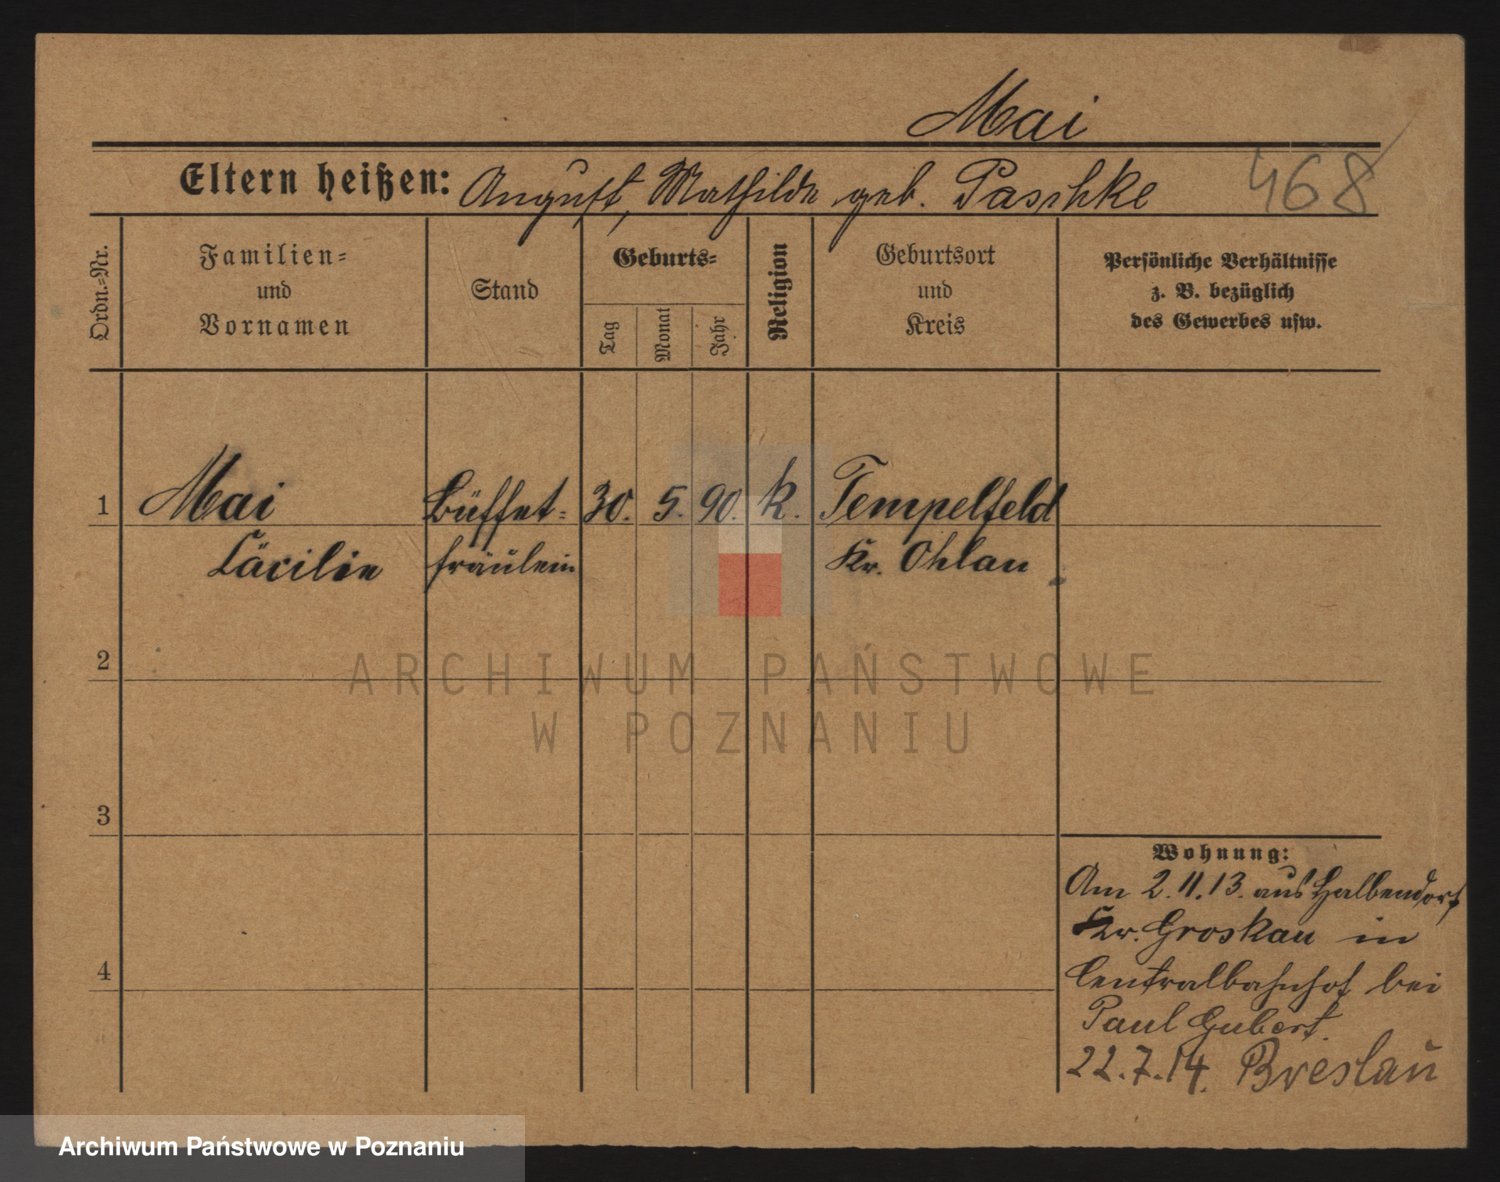 Mai
Eltern heißen: August, Mathilde geb. Paschke 468
Ordn.-Nr.
Familien-
und
Vornamen
Stand
Geburts-
Tag
Monat
Jahr
Religion
Geburtsort
und
Kreis
Persönliche Verhältnisse
z. B. bezüglich
des Gewerbes usw.
1 Mai Büffet- 30. 5. 90. k. Tempelfeld
Cäcilie fräulein Kr. Ohlau
2
ARCHIWUM PAŃSTWOWE
W POZNANIU
3
Wohnung:
Am 2.11.13. aus Halbendorf
Kr. Groskau in
4
Centralbahnhof bei
Paul Gubert.
22.7.14. Breslau
Archiwum Państwowe w Poznaniu